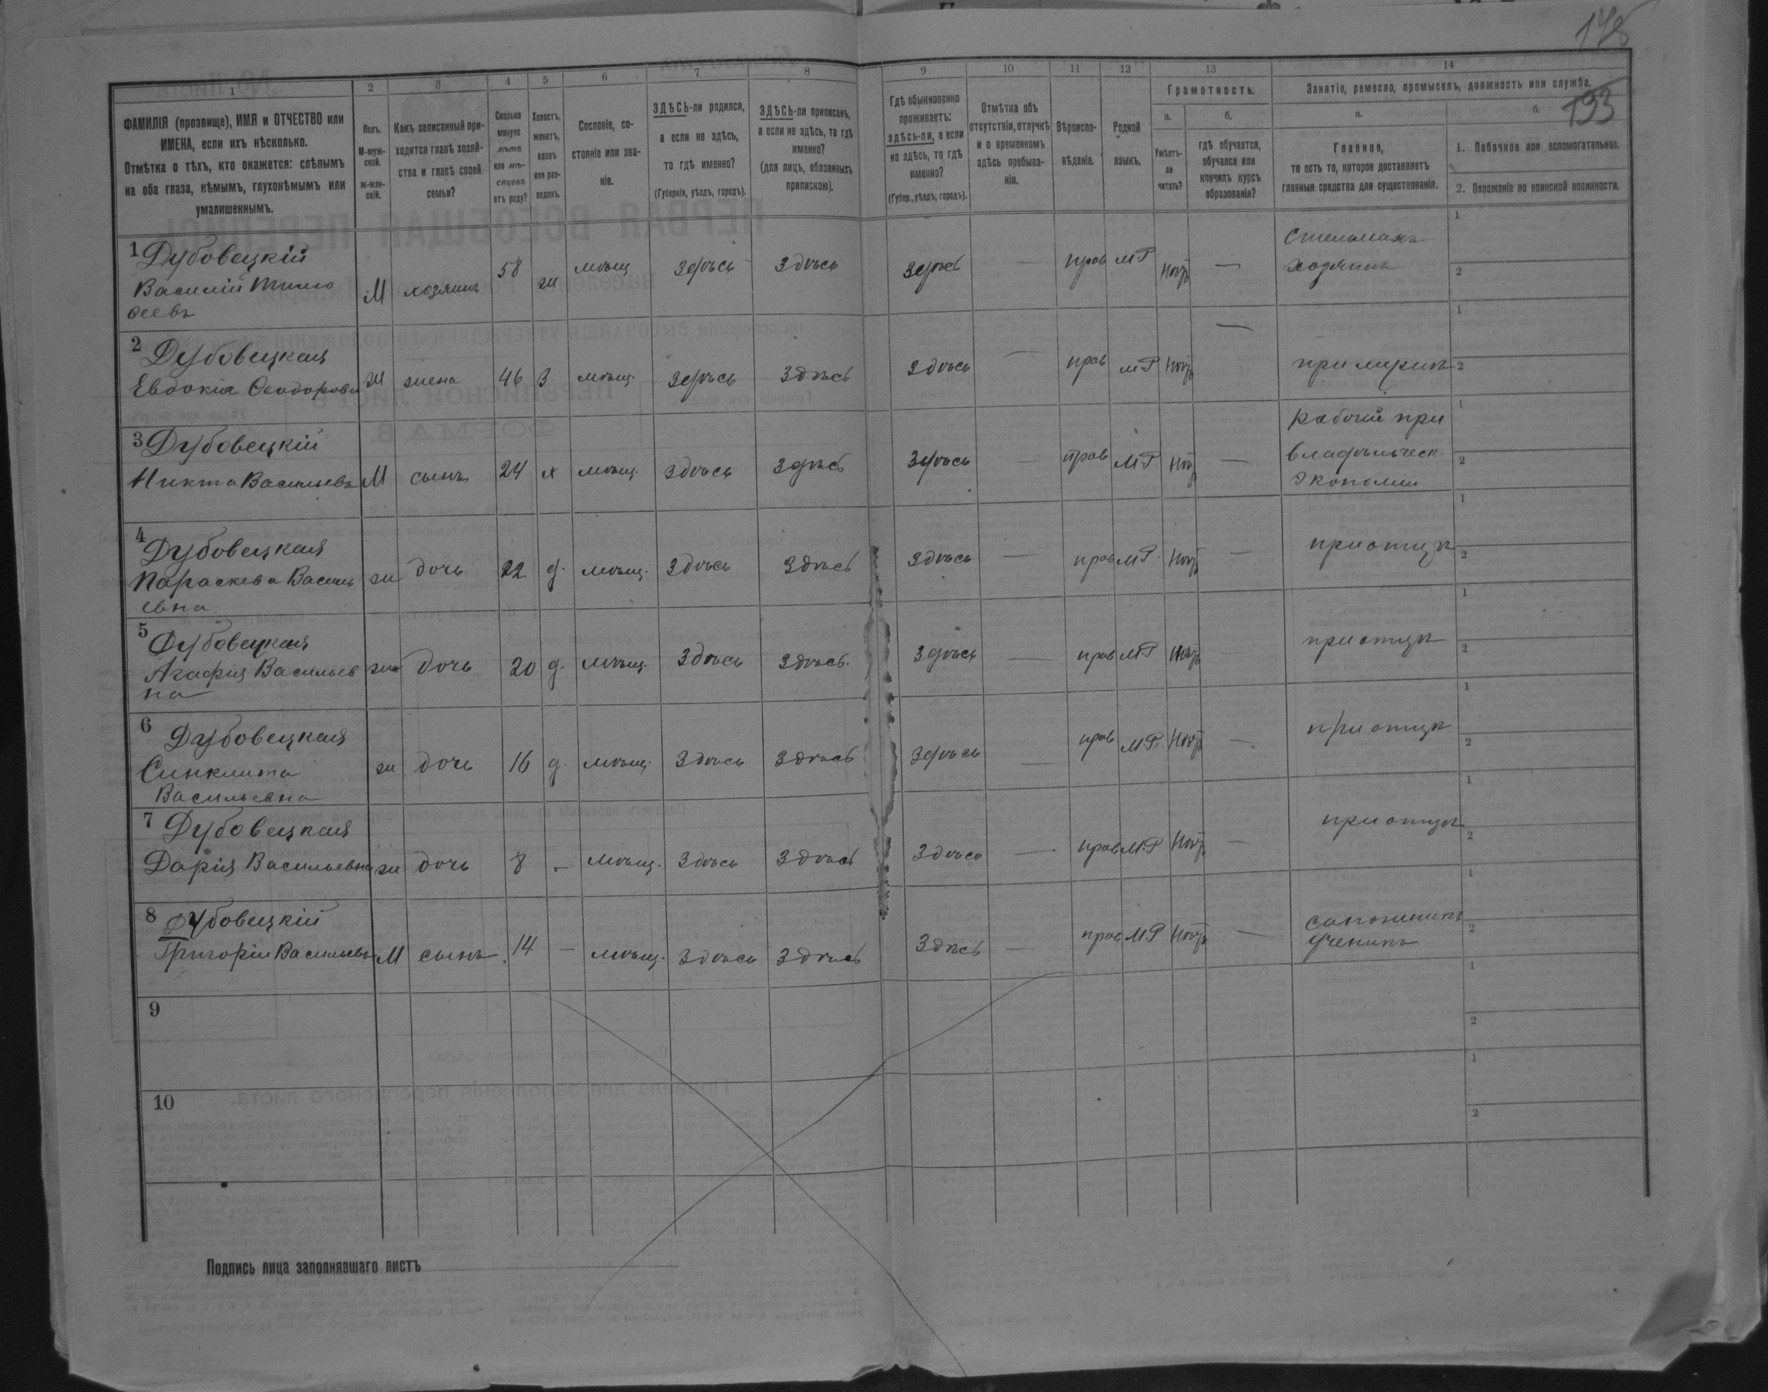 178
193
1
2
3
4
5
6
7
8
9
10
11
12
13
14
ФАМИЛІЯ (прозвище), ИМЯ и ОТЧЕСТВО или ИМЕНА, если ихъ нѣсколько.
Отмѣтка о тѣхъ, кто окажется: слѣпымъ на оба глаза, нѣмымъ, глухонѣмымъ или умалишеннымъ.
Полъ.
М-муж-
ской.
Ж-жен-
скій.
Какъ записанный при-
ходится главѣ хозяй-
ства и главѣ своей
семьи?
Сколько
минуло
лѣтъ
или мѣ-
сяцевъ
отъ роду?
Холостъ,
женатъ,
вдовъ
или раз-
веденъ.
Сословіе, со-
стояніе или зва-
ніе.
ЗДѢСЬ-ли родился,
а если не здѣсь,
то гдѣ именно?
(Губернія, уѣздъ, городъ).
ЗДѢСЬ-ли приписанъ,
а если не здѣсь, то гдѣ
именно?
(для лицъ, обязанныхъ
припискою).
Гдѣ обыкновенно
проживаетъ:
здѣсь-ли, а если
не здѣсь, то гдѣ
именно?
(Губер., уѣздъ, городъ).
Отмѣтка объ
отсутствіи, отлучкѣ
и о временномъ
здѣсь пребыва-
ніи.
Вѣроиспо-
вѣданіе.
Родной
языкъ.
Грамотность.
а.
Умѣетъ-
ли
читать?
б.
гдѣ обучается,
обучался или
кончилъ курсъ
образованія?
Занятіе, ремесло, промыселъ, должность или служба.
а.
Главное,
то есть то, которое доставляетъ
главныя средства для существованія.
б.
1. Побочное или вспомогательное.
2. Положеніе по воинской повинности.
1 Дубовецкій
Василій Тимо
ѳеевъ М хозяинъ 58 ж мѣщ здѣсь здѣсь здѣсь — прав МР Нѣтъ — Стельмахъ хозяинъ 1 2
2 Дубовецкая
Евдокія Ѳеодорова ж жена 46 З мѣщ. здѣсь здѣсь здѣсь — прав МР Нѣтъ — при мужѣ 1 2
3 Дубовецкій
Никита Васильевъ М сынъ 24 х мѣщ. здѣсь здѣсь здѣсь — прав МР Нѣтъ — Рабочій при владѣльческ. экономіи 1 2
4 Дубовецкая
Параскева Василь
евна ж дочь 22 д. мѣщ. здѣсь здѣсь здѣсь — прав МР. Нѣтъ — при отцѣ 1 2
5 Дубовецкая
Агафія Васильев
на ж дочь 20 д. мѣщ. здѣсь здѣсь. здѣсь — прав МР Нѣтъ — при отцѣ 1 2
6 Дубовецкая
Синклита
Васильевна ж дочь 16 д. мѣщ. здѣсь здѣсь здѣсь — прав МР. Нѣтъ — при отцѣ 1 2
7 Дубовецкая
Дарія Васильевна ж дочь 8 – мѣщ. здѣсь здѣсь здѣсь — прав МР Нѣтъ — при отцѣ 1 2
8 Дубовецкій
Григорій Васильевъ М сынъ 14 – мѣщ. здѣсь здѣсь здѣсь — прав МР Нѣтъ — сапожникъ ученикъ 1 2
9 1 2
10 1 2
Подпись лица заполнявшаго листъ